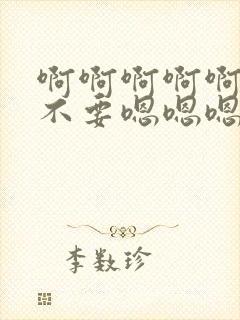 啊啊啊啊啊
不要嗯嗯嗯
李数珍